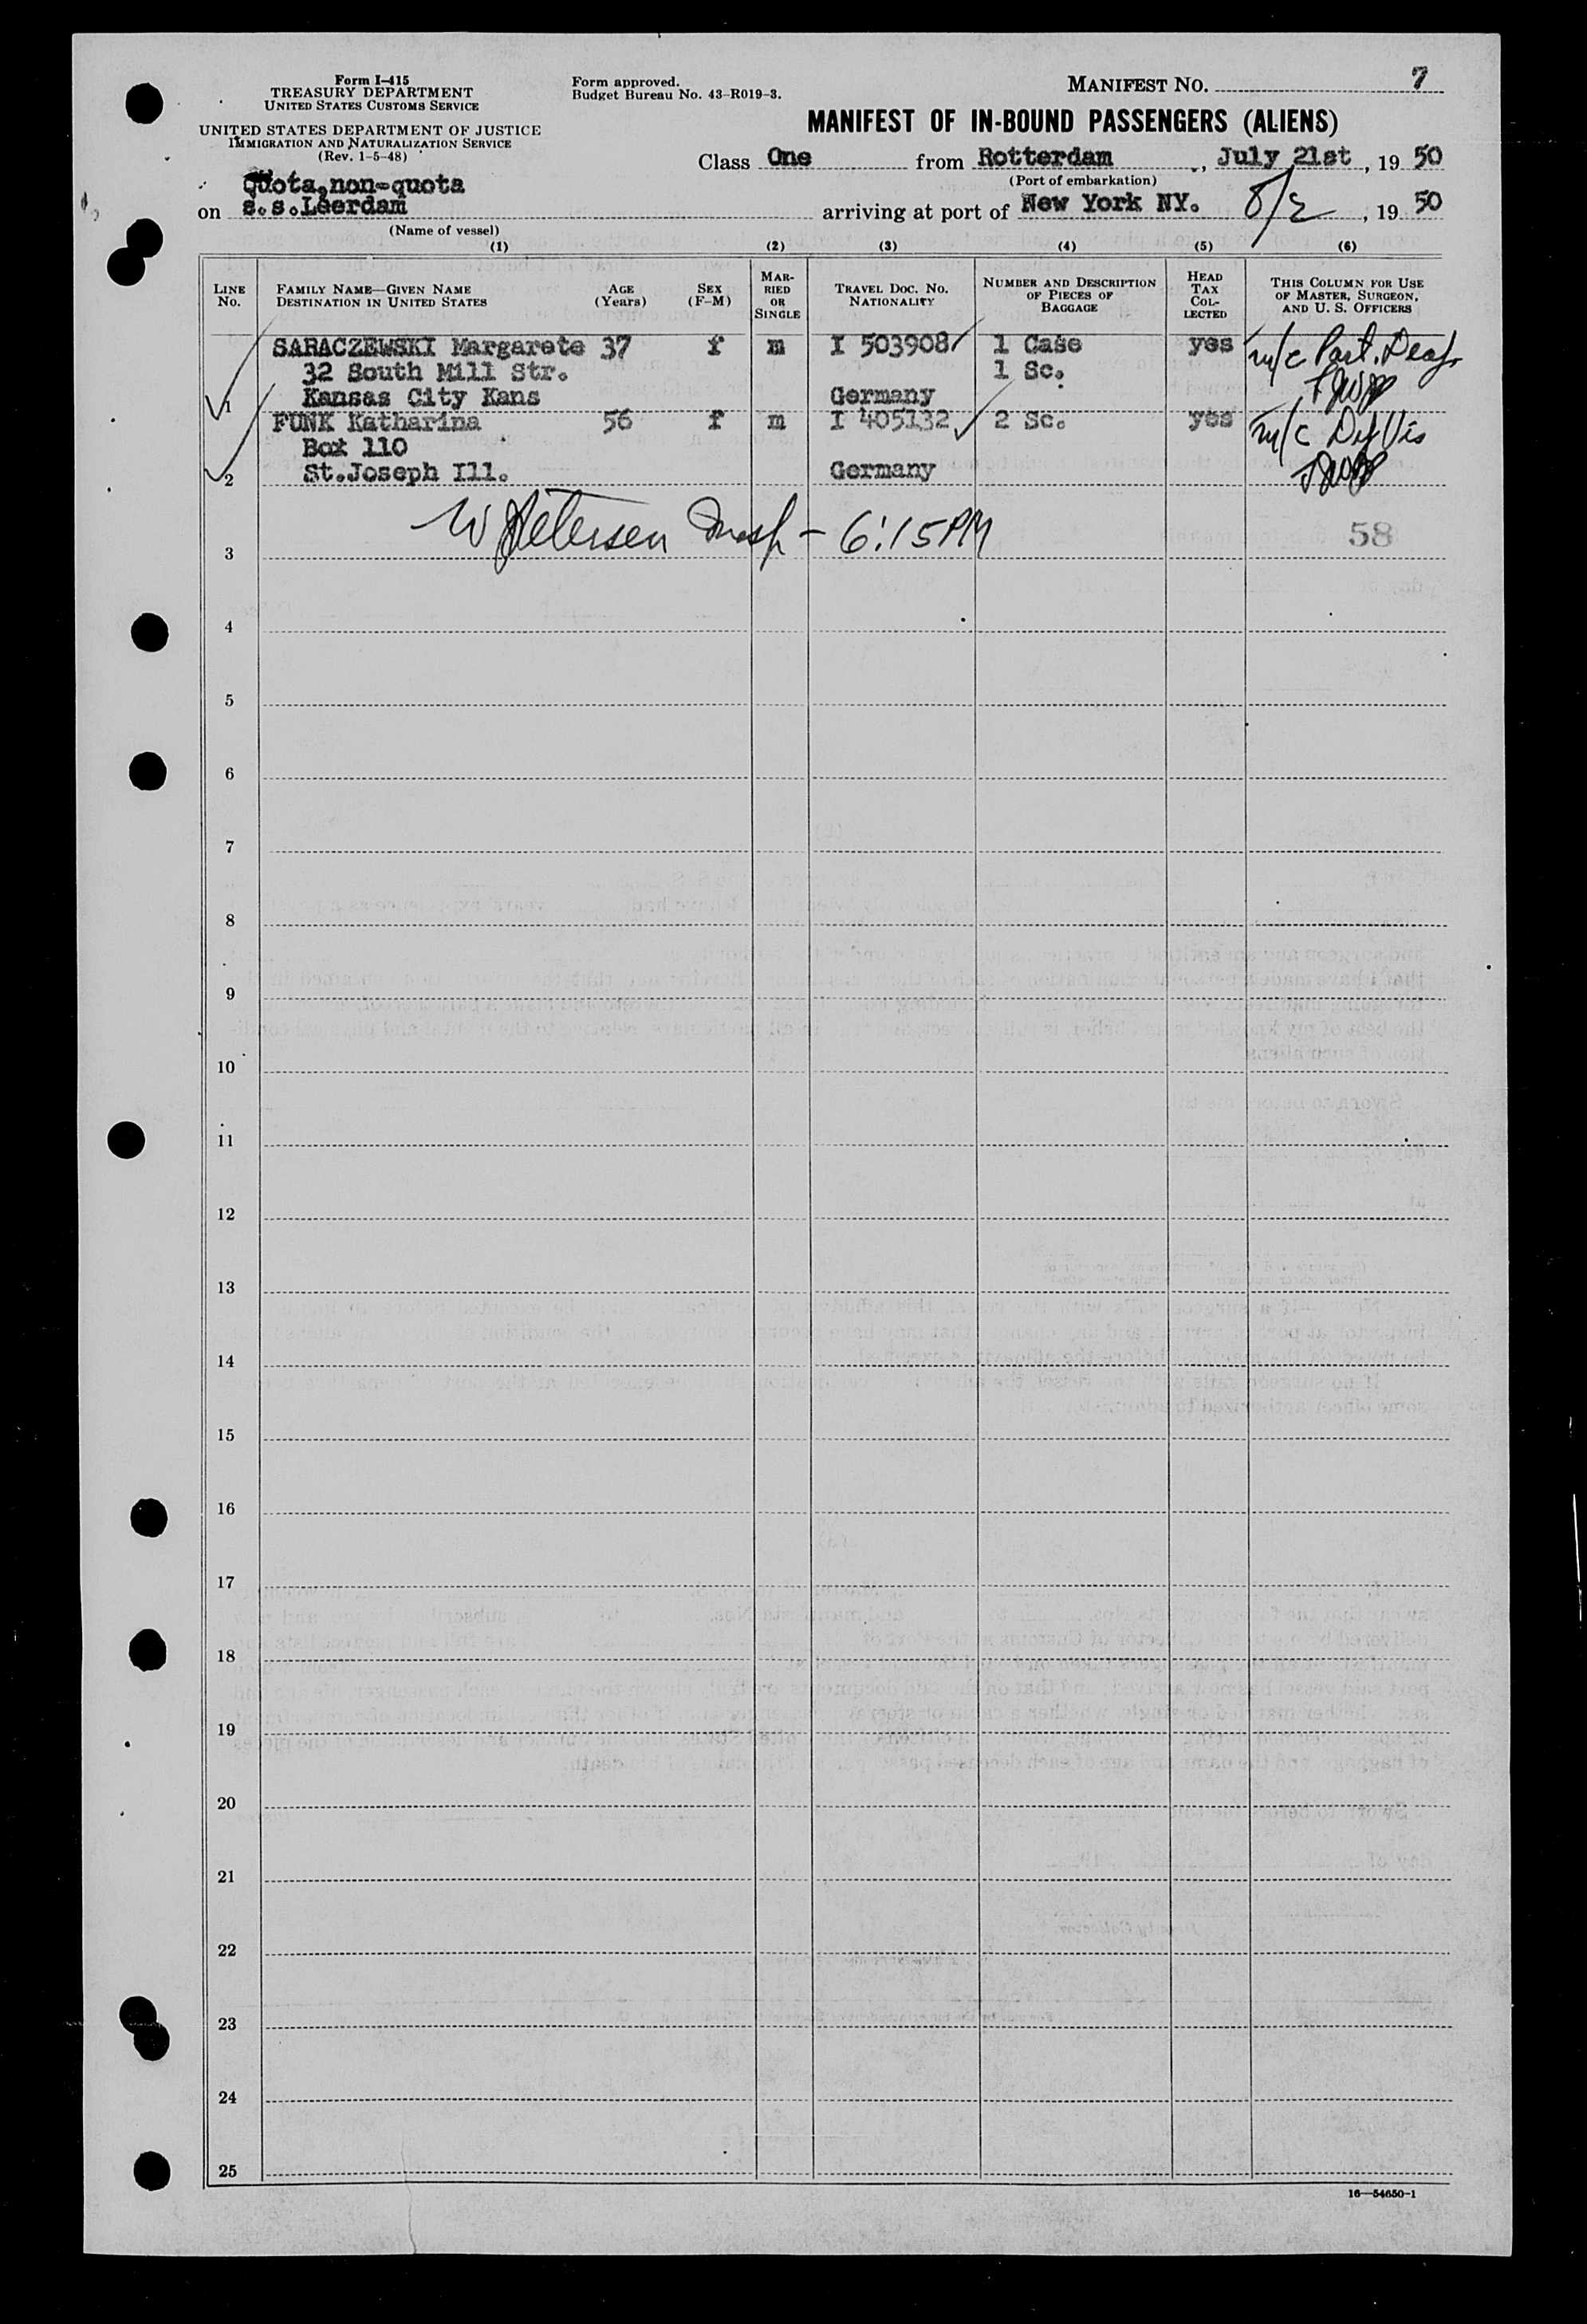 Form I-415
TREASURY DEPARTMENT
UNITED STATES CUSTOMS SERVICE
UNITED STATES DEPARTMENT OF JUSTICE
IMMIGRATION AND NATURALIZATION SERVICE
(Rev. 1-5-48)
Form approved.
Budget Bureau No. 43-R019-3.
MANIFEST NO. 7
MANIFEST OF IN-BOUND PASSENGERS (ALIENS)
Class One from Rotterdam, July 21st, 19 50
(Port of embarkation)
Quota, non-quota
on s.s.Leerdam arriving at port of New York NY. 8/2, 19 50
(Name of vessel)
(1) (2) (3) (4) (5) (6)
LINE No. FAMILY NAME—GIVEN NAME DESTINATION IN UNITED STATES AGE (Years) SEX (F-M) MARRIED OR SINGLE TRAVEL DOC. NO. NATIONALITY NUMBER AND DESCRIPTION OF PIECES OF BAGGAGE HEAD TAX COLLECTED THIS COLUMN FOR USE OF MASTER, SURGEON, AND U. S. OFFICERS
SARACZEWSKI Margarete 37 f m I 503908 1 Case yes m/c Part. Deaf
32 South Mill Str. 1 Sc.
1 Kansas City Kans Germany
FUNK Katharina 56 f m I 405132 2 Sc. yes m/c Def Vis
Box 110
2 St.Joseph Ill. Germany
W Petersen Insp - 6:15 PM 58
3
4
5
6
7
8
9
10
11
12
13
14
15
16
17
18
19
20
21
22
23
24
25
16—54650-1